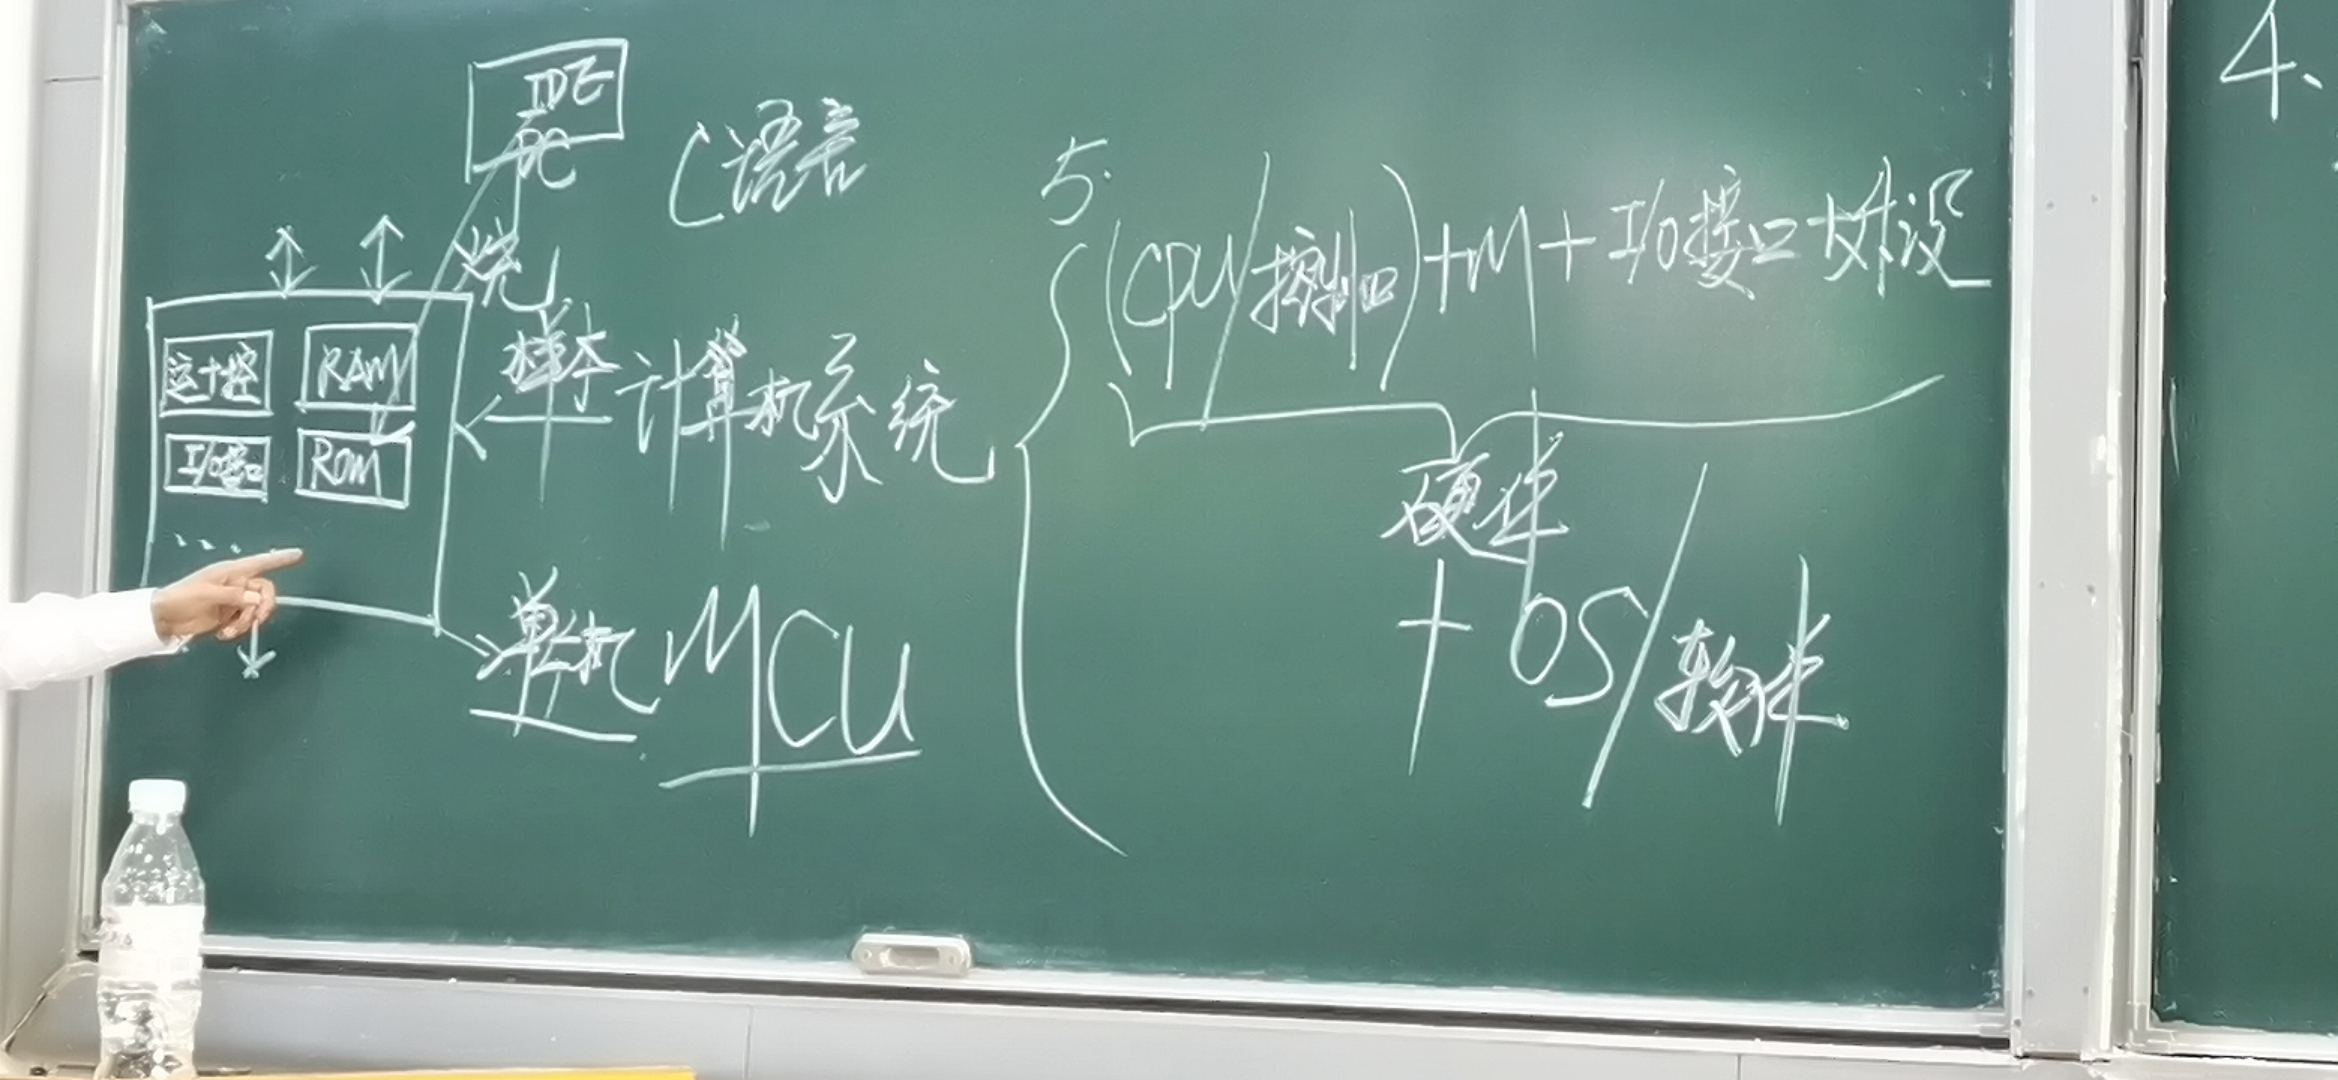 IDE
PC
C语言
烧
运+控
RAM
I/O接口
ROM
....
计算机系统
单片机 MCU
5.
(CPU/控制口)+M+I/O接口+外设
硬件
+OS/软件
4、